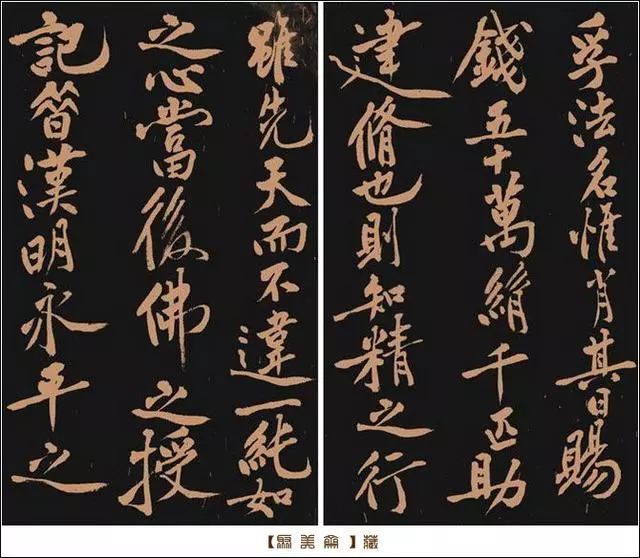 孚法名惟肖其日賜
錢五十萬絹千疋助
建脩也則知精之行
雖先天而不違一純如
之心當後佛之授
記昔漢明永平之
美齋】藏